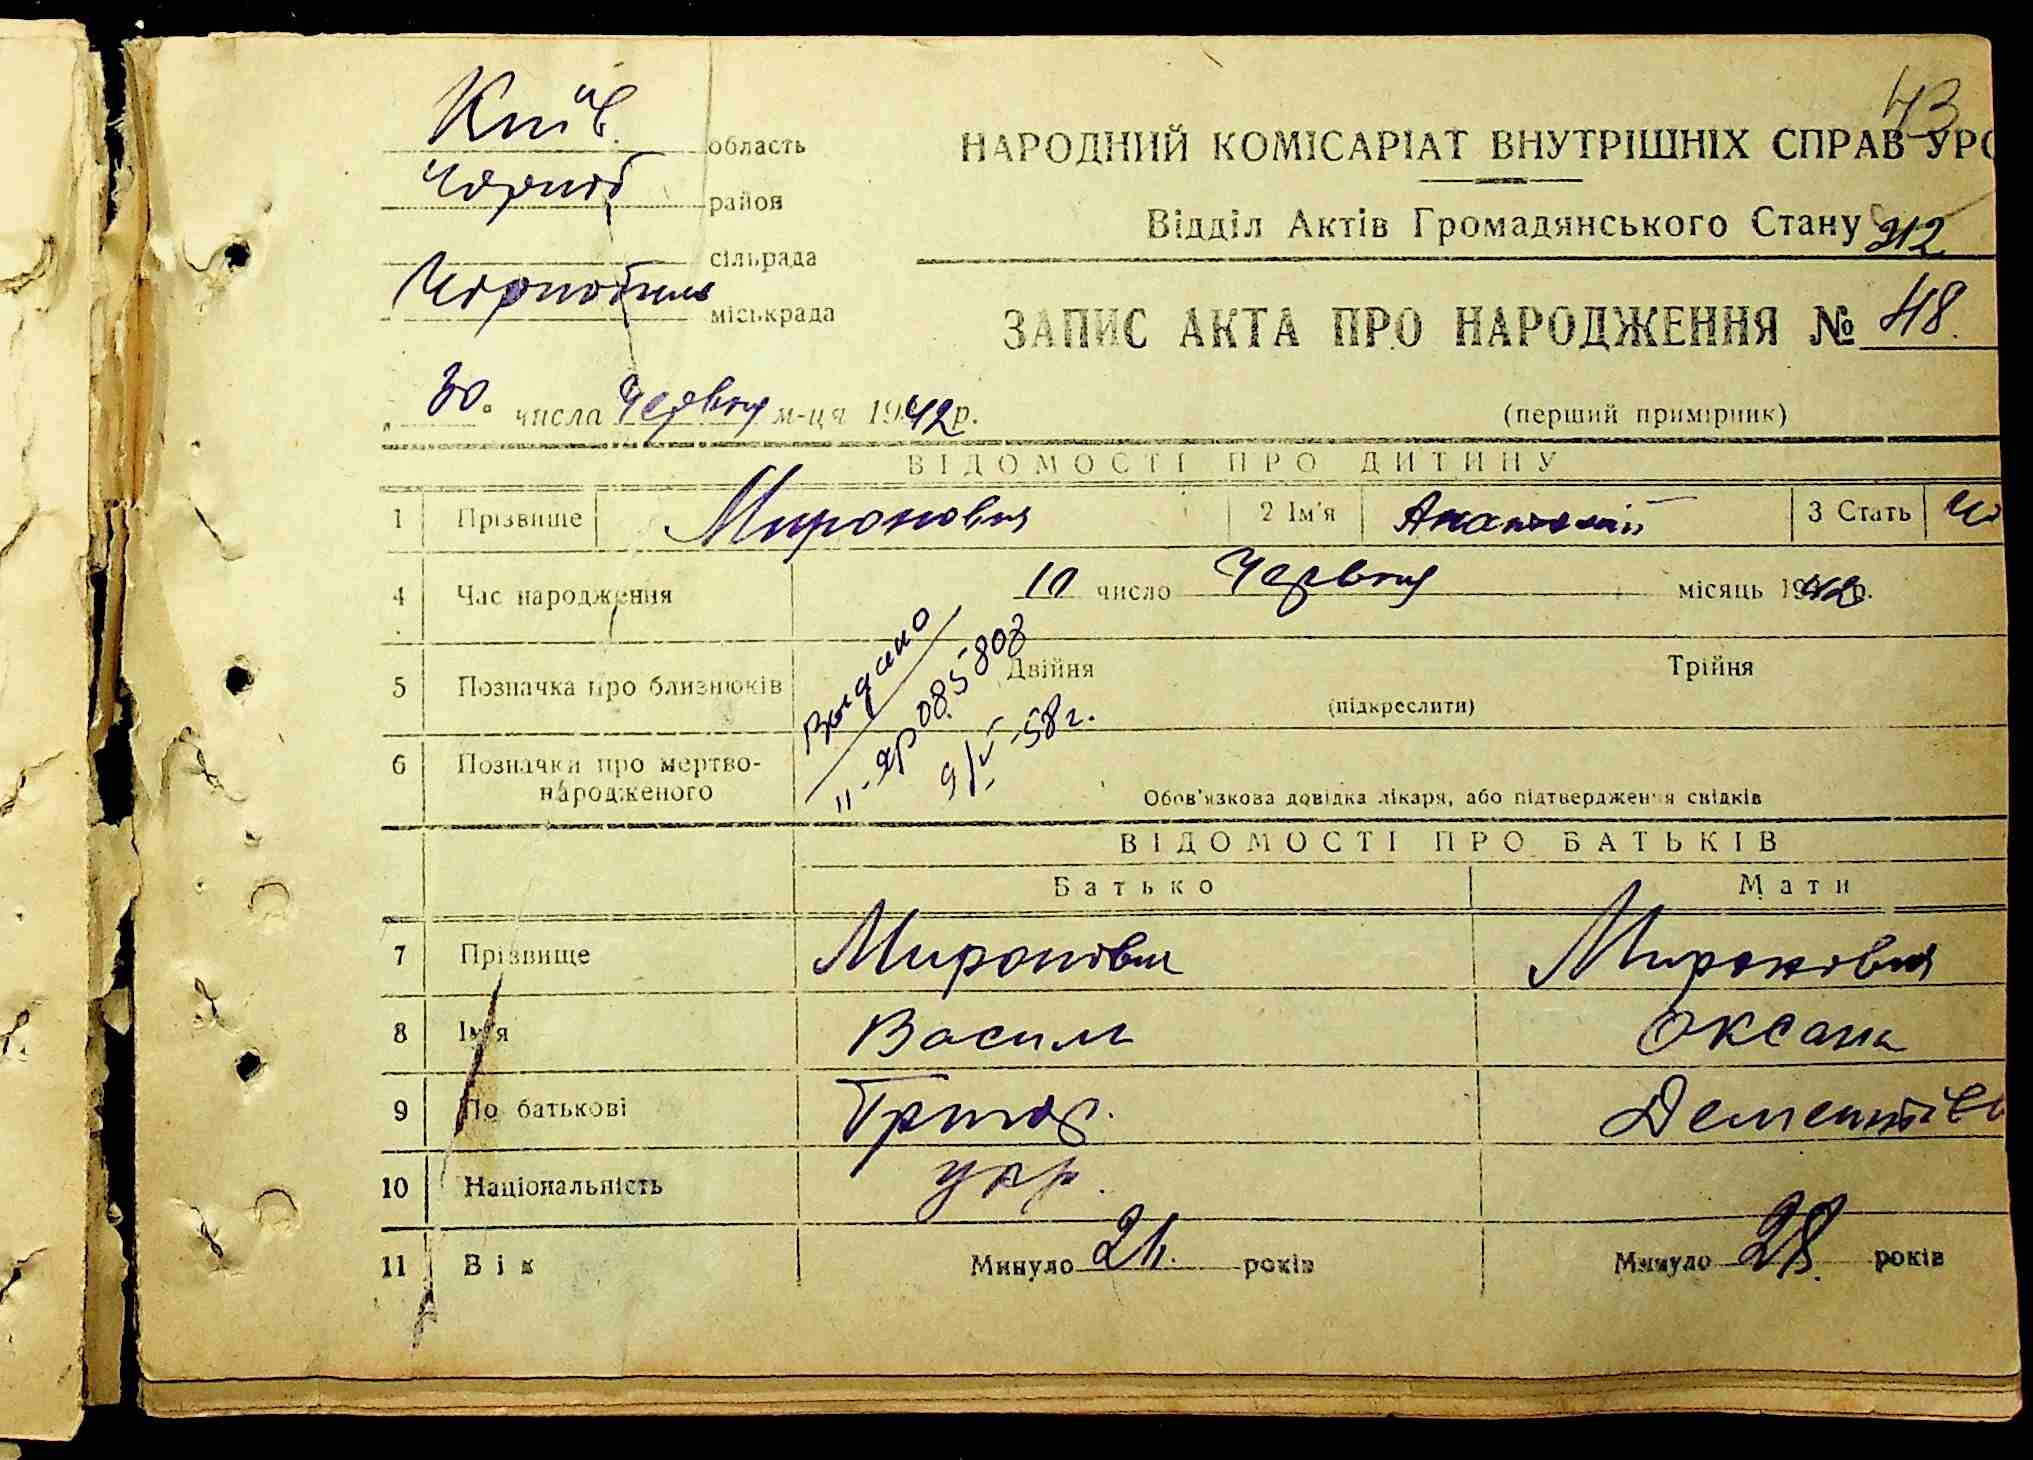 43
Київ. область
Чорноб район
сільрада
Чорнобиль міськрада
НАРОДНИЙ КОМІСАРІАТ ВНУТРІШНІХ СПРАВ УРС
Відділ Актів Громадянського Стану 212
ЗАПИС АКТА ПРО НАРОДЖЕННЯ № 48.
„30“ числа Червня м-ця 1942 р.
(перший примірник)
ВІДОМОСТІ ПРО ДИТИНУ
1 Прізвище Миронович 2 Ім'я Анатолій 3 Стать Чо
4 Час народження 10 число Червня місяць 1942 р.
5 Позначка про близнюків Двійня Трійня
(підкреслити)
Выдано
II-ЯР 085808
9/V-58 г.
6 Позначки про мертво-
народженого
Обов'язкова довідка лікаря, або підтвердження свідків
ВІДОМОСТІ ПРО БАТЬКІВ
Батько Мати
7 Прізвище Миронович Миронович
8 Ім'я Василь Оксана
9 По батькові Григор. Дементіїв
10 Національність укр.
11 Вік Минуло 21. років Минуло 28. років